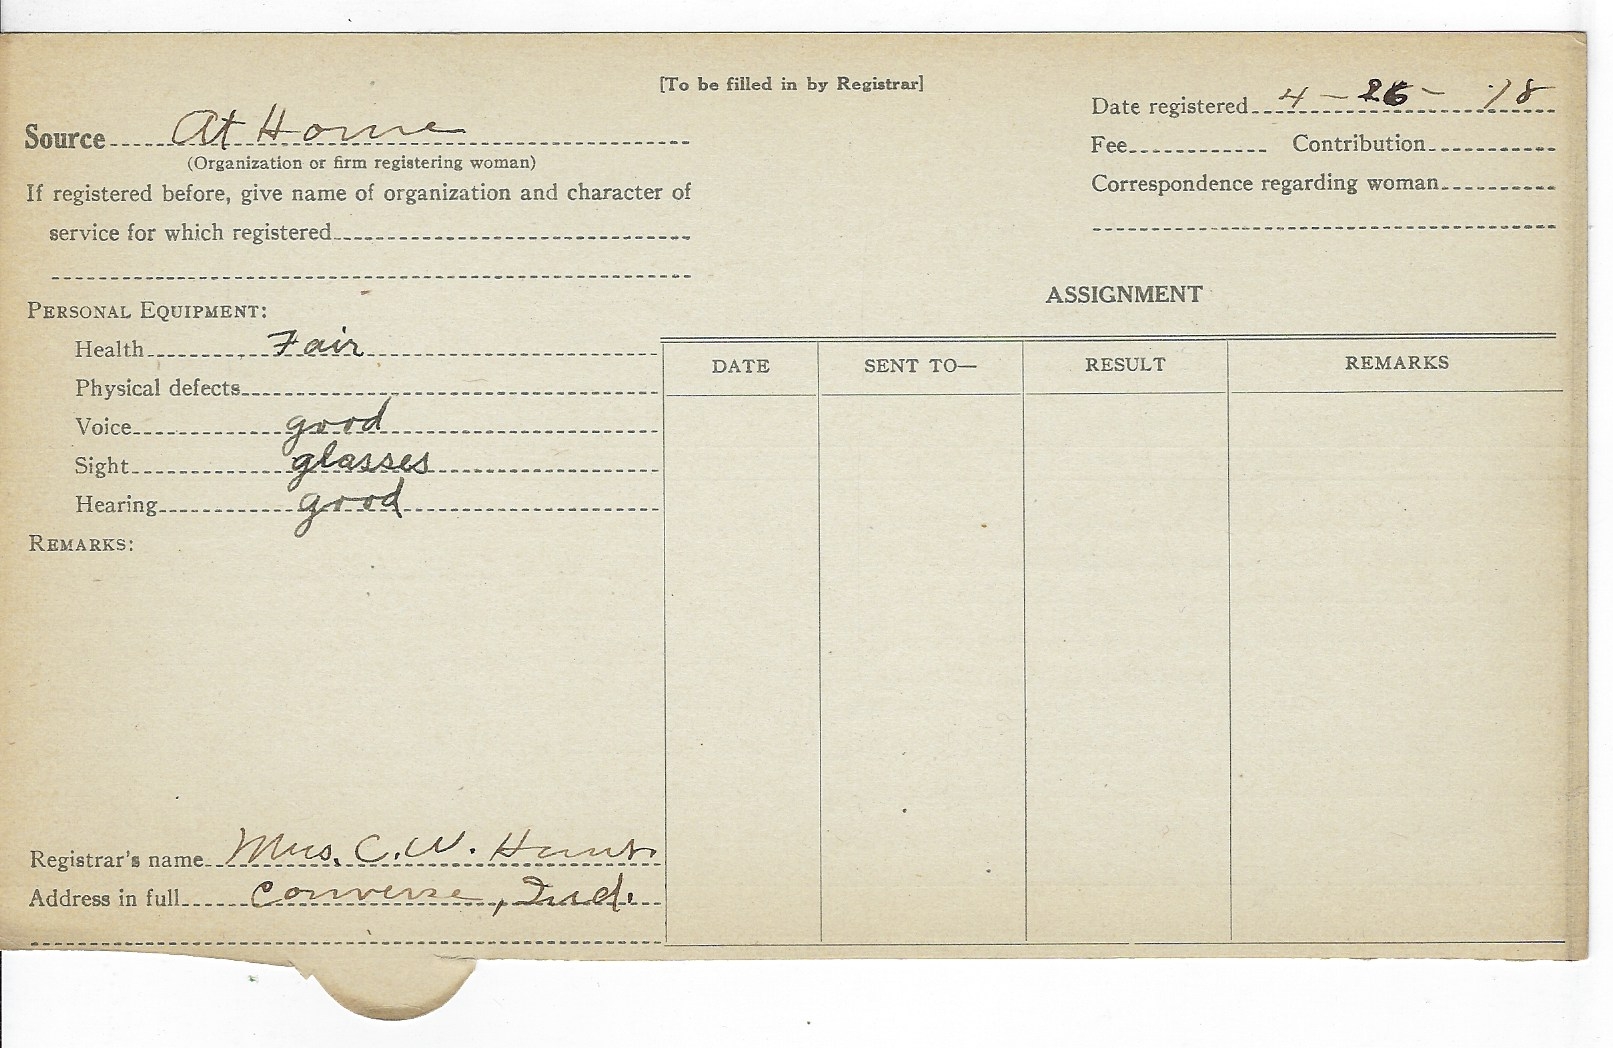 [To be filled in by Registrar]
Source At Home
(Organization or firm registering woman)
If registered before, give name of organization and character of
service for which registered
Date registered 4-26-'18
Fee Contribution
Correspondence regarding woman
PERSONAL EQUIPMENT:
Health Fair
Physical defects
Voice good
Sight glasses
Hearing good
REMARKS:
Registrar's name Mrs. C. W. Hunt
Address in full Converse, Ind.
ASSIGNMENT
DATE SENT TO— RESULT REMARKS